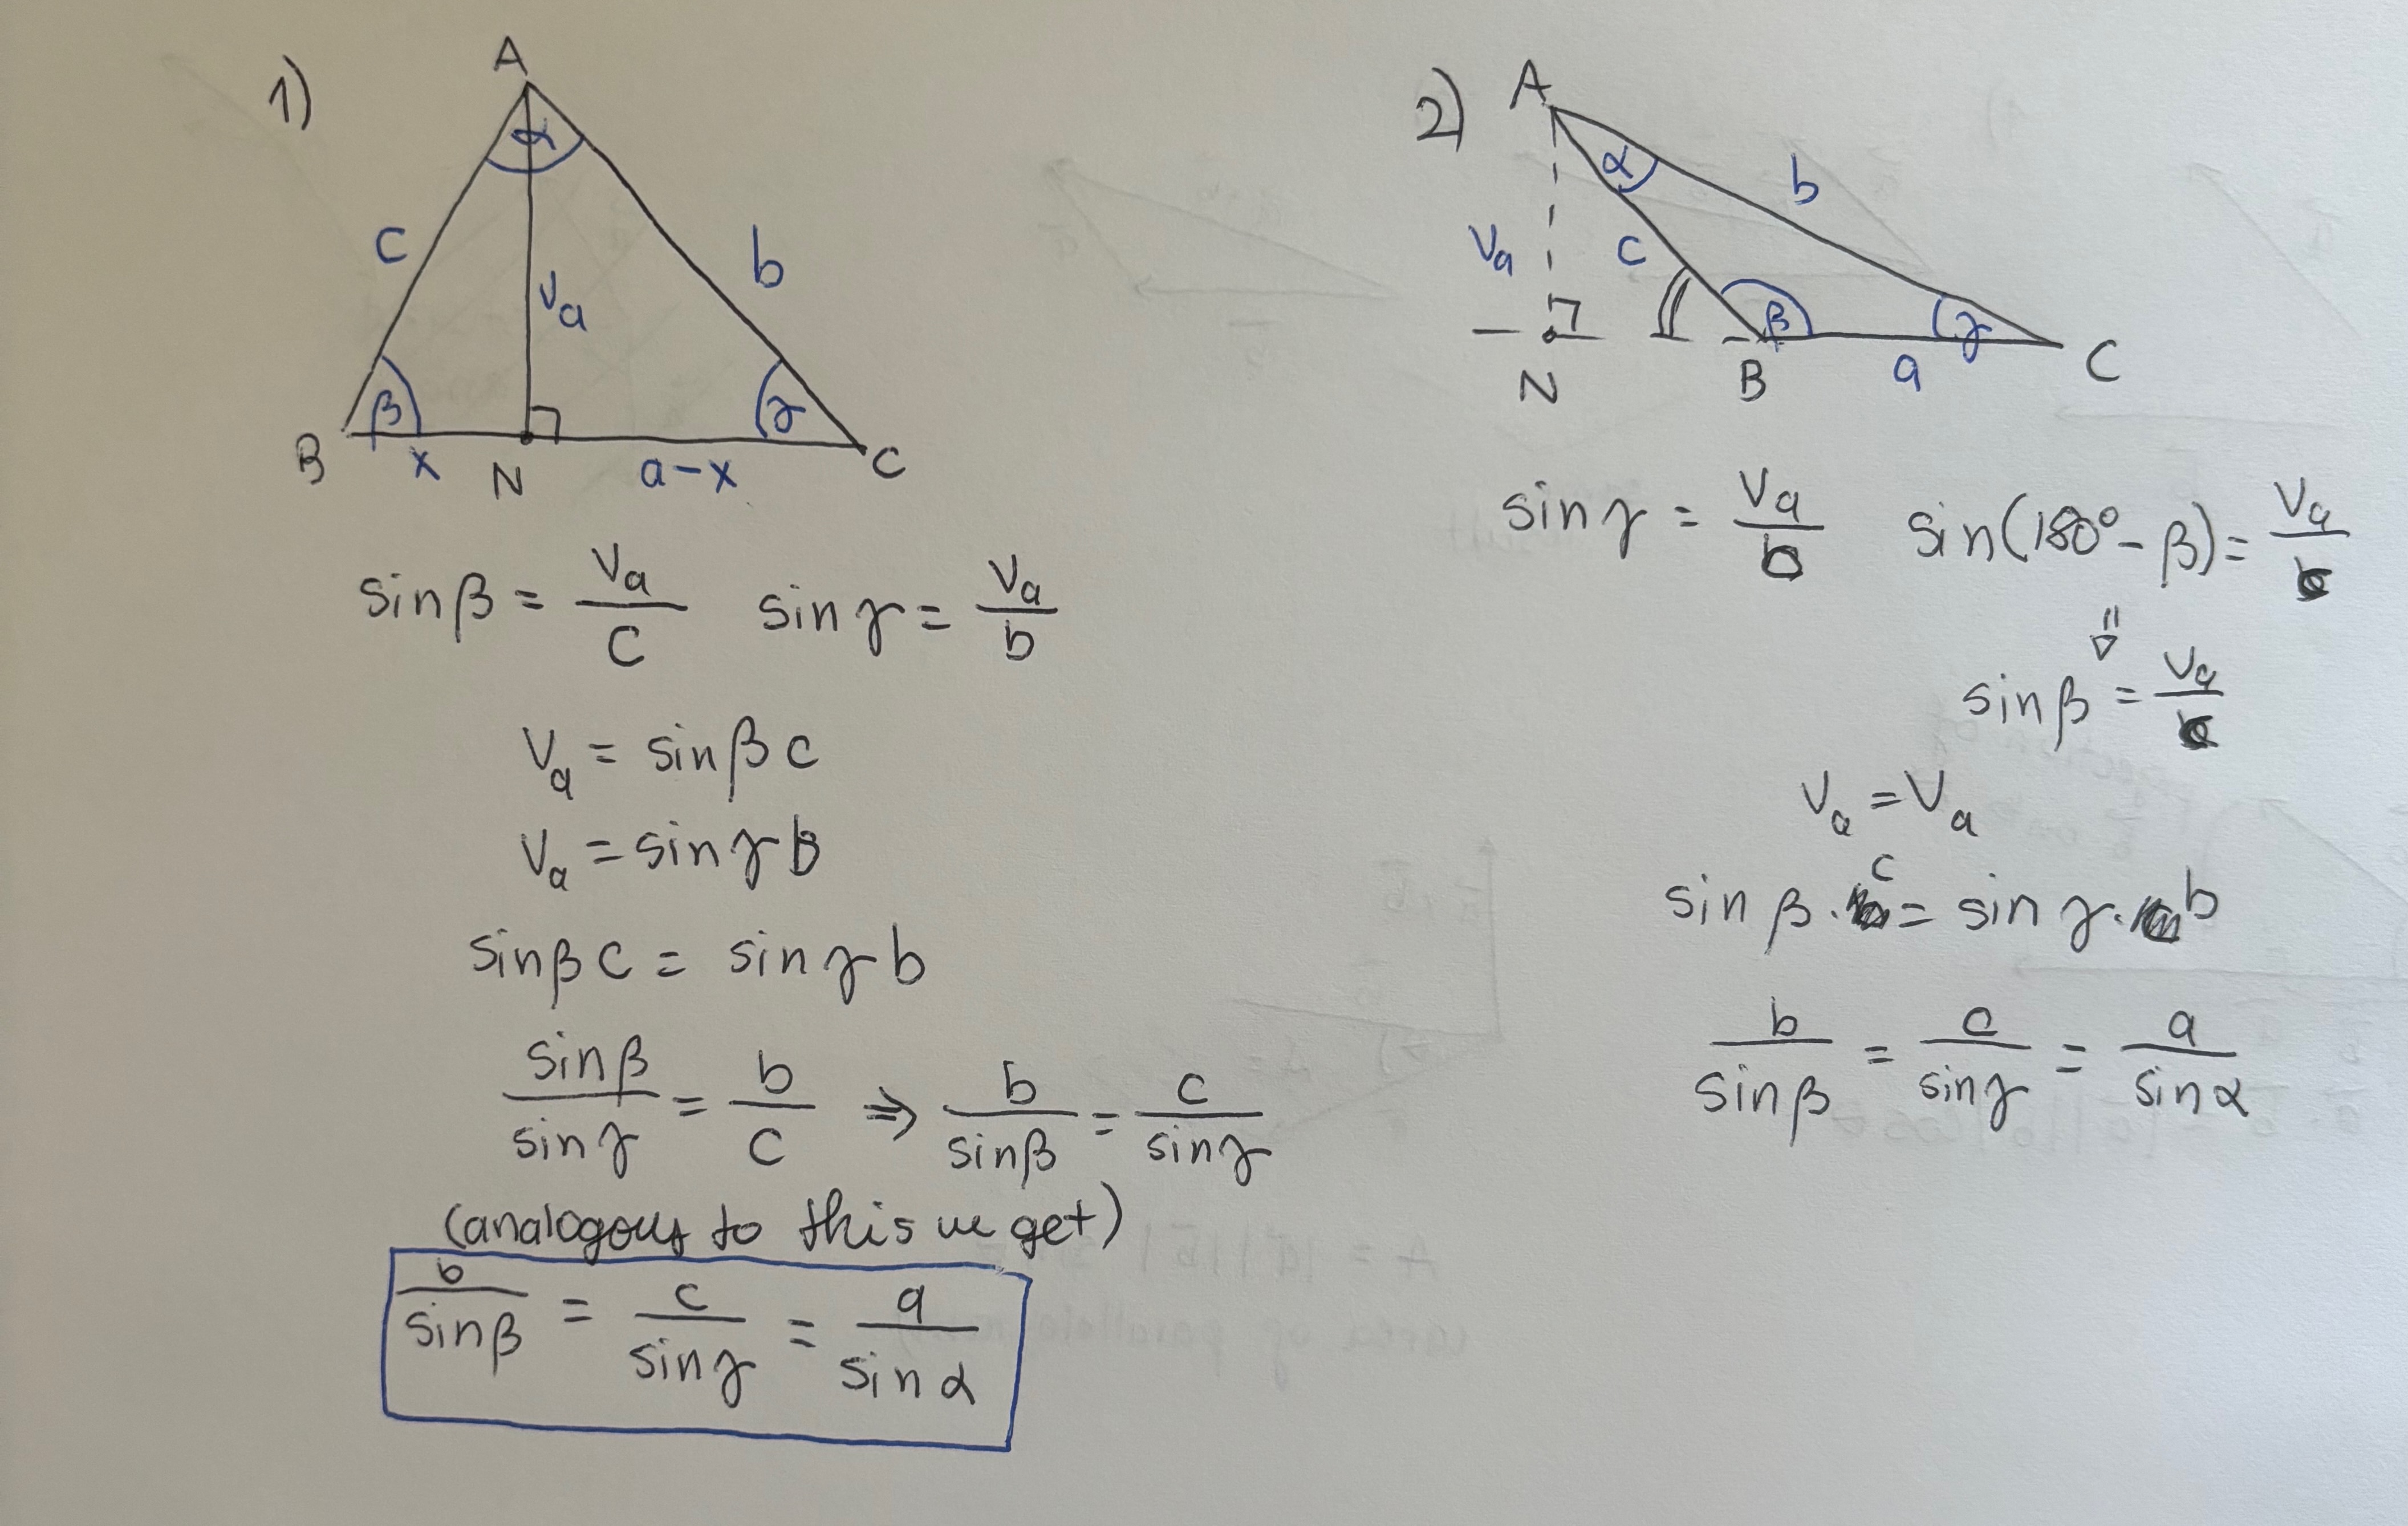 1)
A
α
c
b
Va
β
γ
B
x
N
a-x
C
sinβ = Va/c  sinγ = Va/b
Va = sinβ c
Va = sinγ b
sinβ c = sinγ b
sinβ/sinγ = b/c ⇒ b/sinβ = c/sinγ
(analogous to this we get)
b/sinβ = c/sinγ = a/sinα
2)
A
α
b
Va
c
β
γ
N
B
a
C
sinγ = Va/b  sin(180°-β) = Va/
⇓
sinβ = Va/
Va = Va
sinβ · c = sinγ · b
b/sinβ = c/sinγ = a/sinα